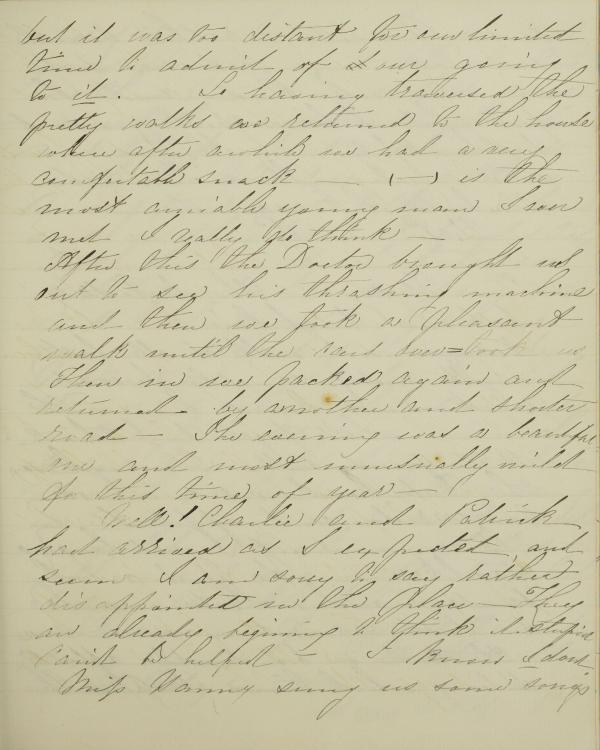 but it was too distant for our limited
time to admit of our going
to it. So having traversed the
pretty walks we returned to the house
where after awhile we had a very
comfortable snack — (—) is the
most amiable young man I ever
met I really do think —
After this the Doctor brought us
out to see his thrashing machine
and then we took a pleasant
walk until the card over=took us
Then in we packed again and
returned by another and shorter
road — The evening was a beautiful
one and most unusually mild
for this time of year —
Well! Charlie and Patrick
had arrived as I expected and
seem I am sorry to say rather
disappointed in the place — They
are already begining to think it stupid
Can't be helped — I know I dont
Miss Vanny sung us some songs